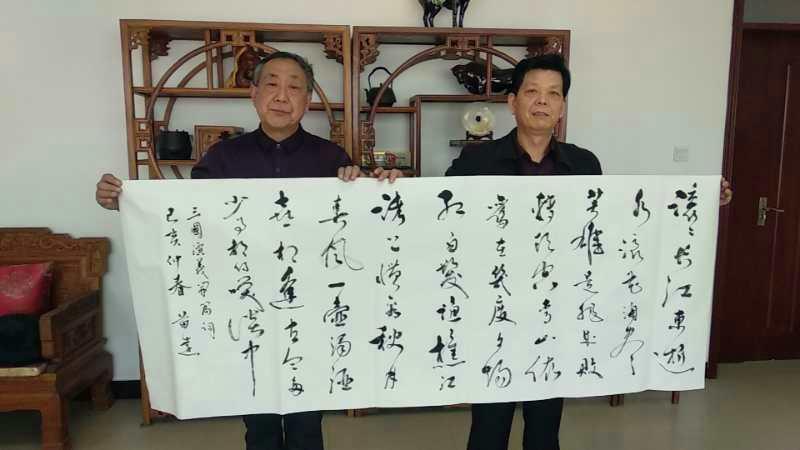 滚々长江东逝
水浪花淘尽
英雄是非成败
转头空青山依
旧在几度夕阳
红白发渔樵江
渚上惯看秋月
春风一壶浊酒
喜相逢古今多
少事都付笑谈中
三國演义开篇词
己亥仲春 苗